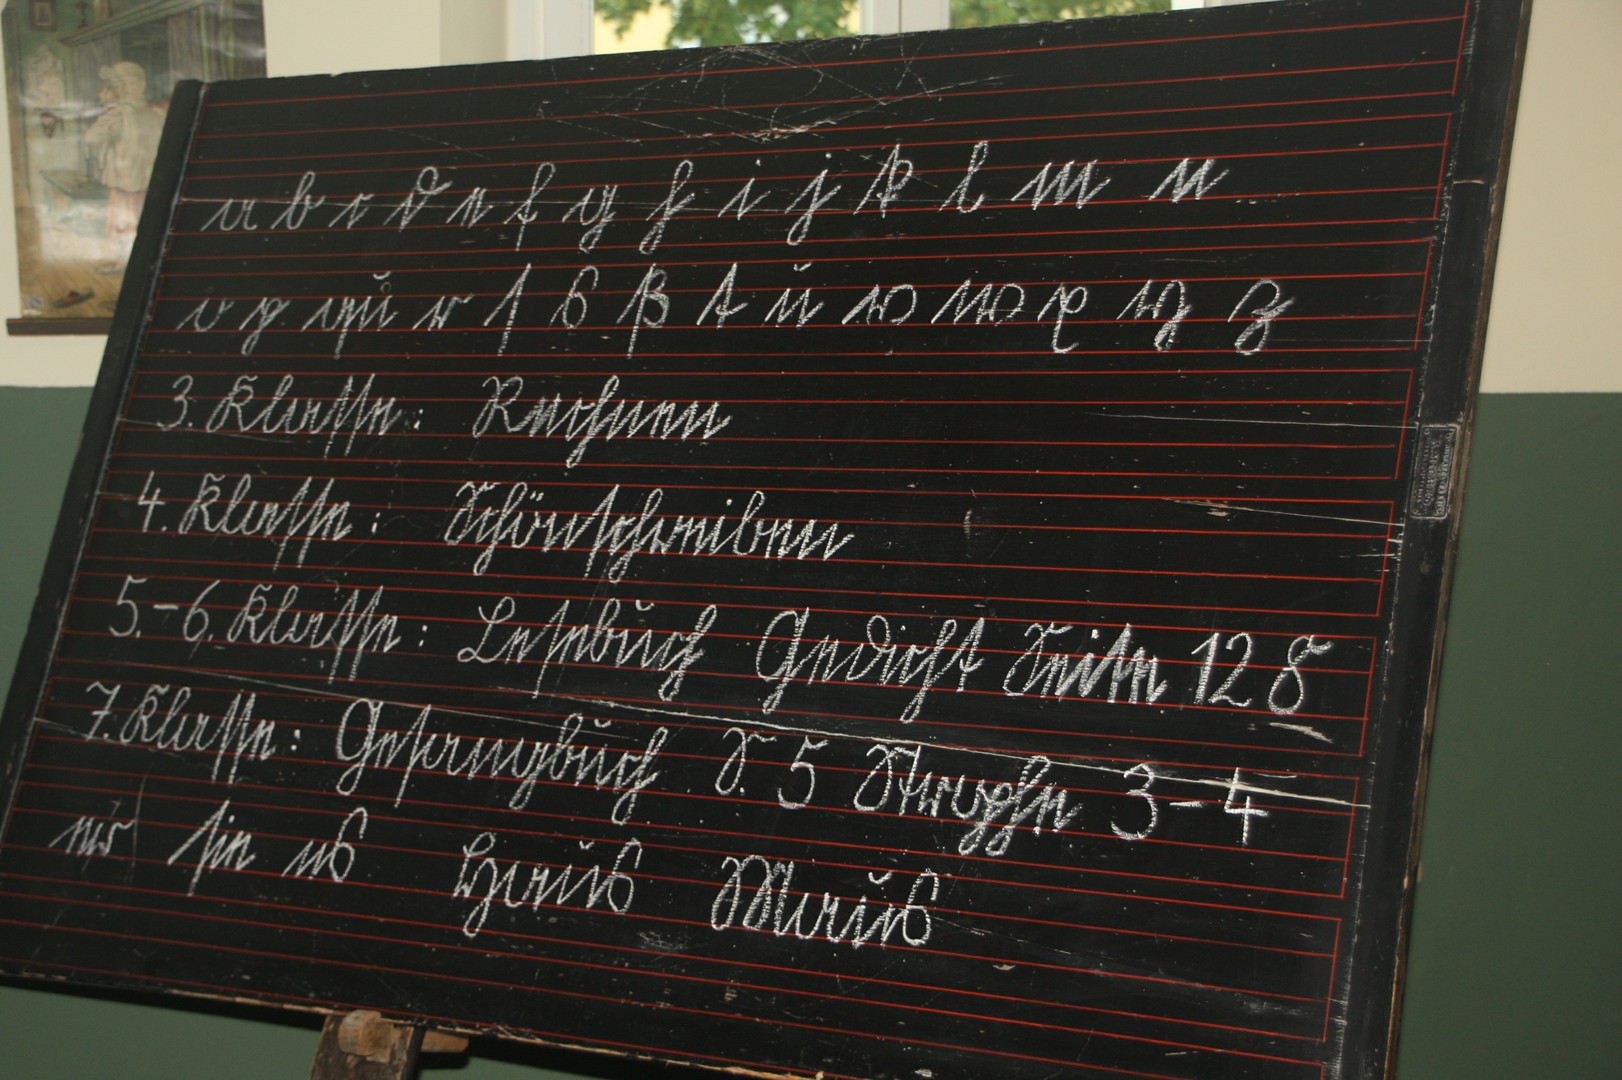 a b c d e f g h i j k l m n
o p qu r ſ s ß t u v w x y z
3. Klaſſe: Rechnen
4. Klaſſe: Schönſchreiben
5.-6. Klaſſe: Leſebuch Gedicht Seite 128
7. Klaſſe: Geſangbuch S. 5 Strophe 3-4
er ſie es Haus Maus